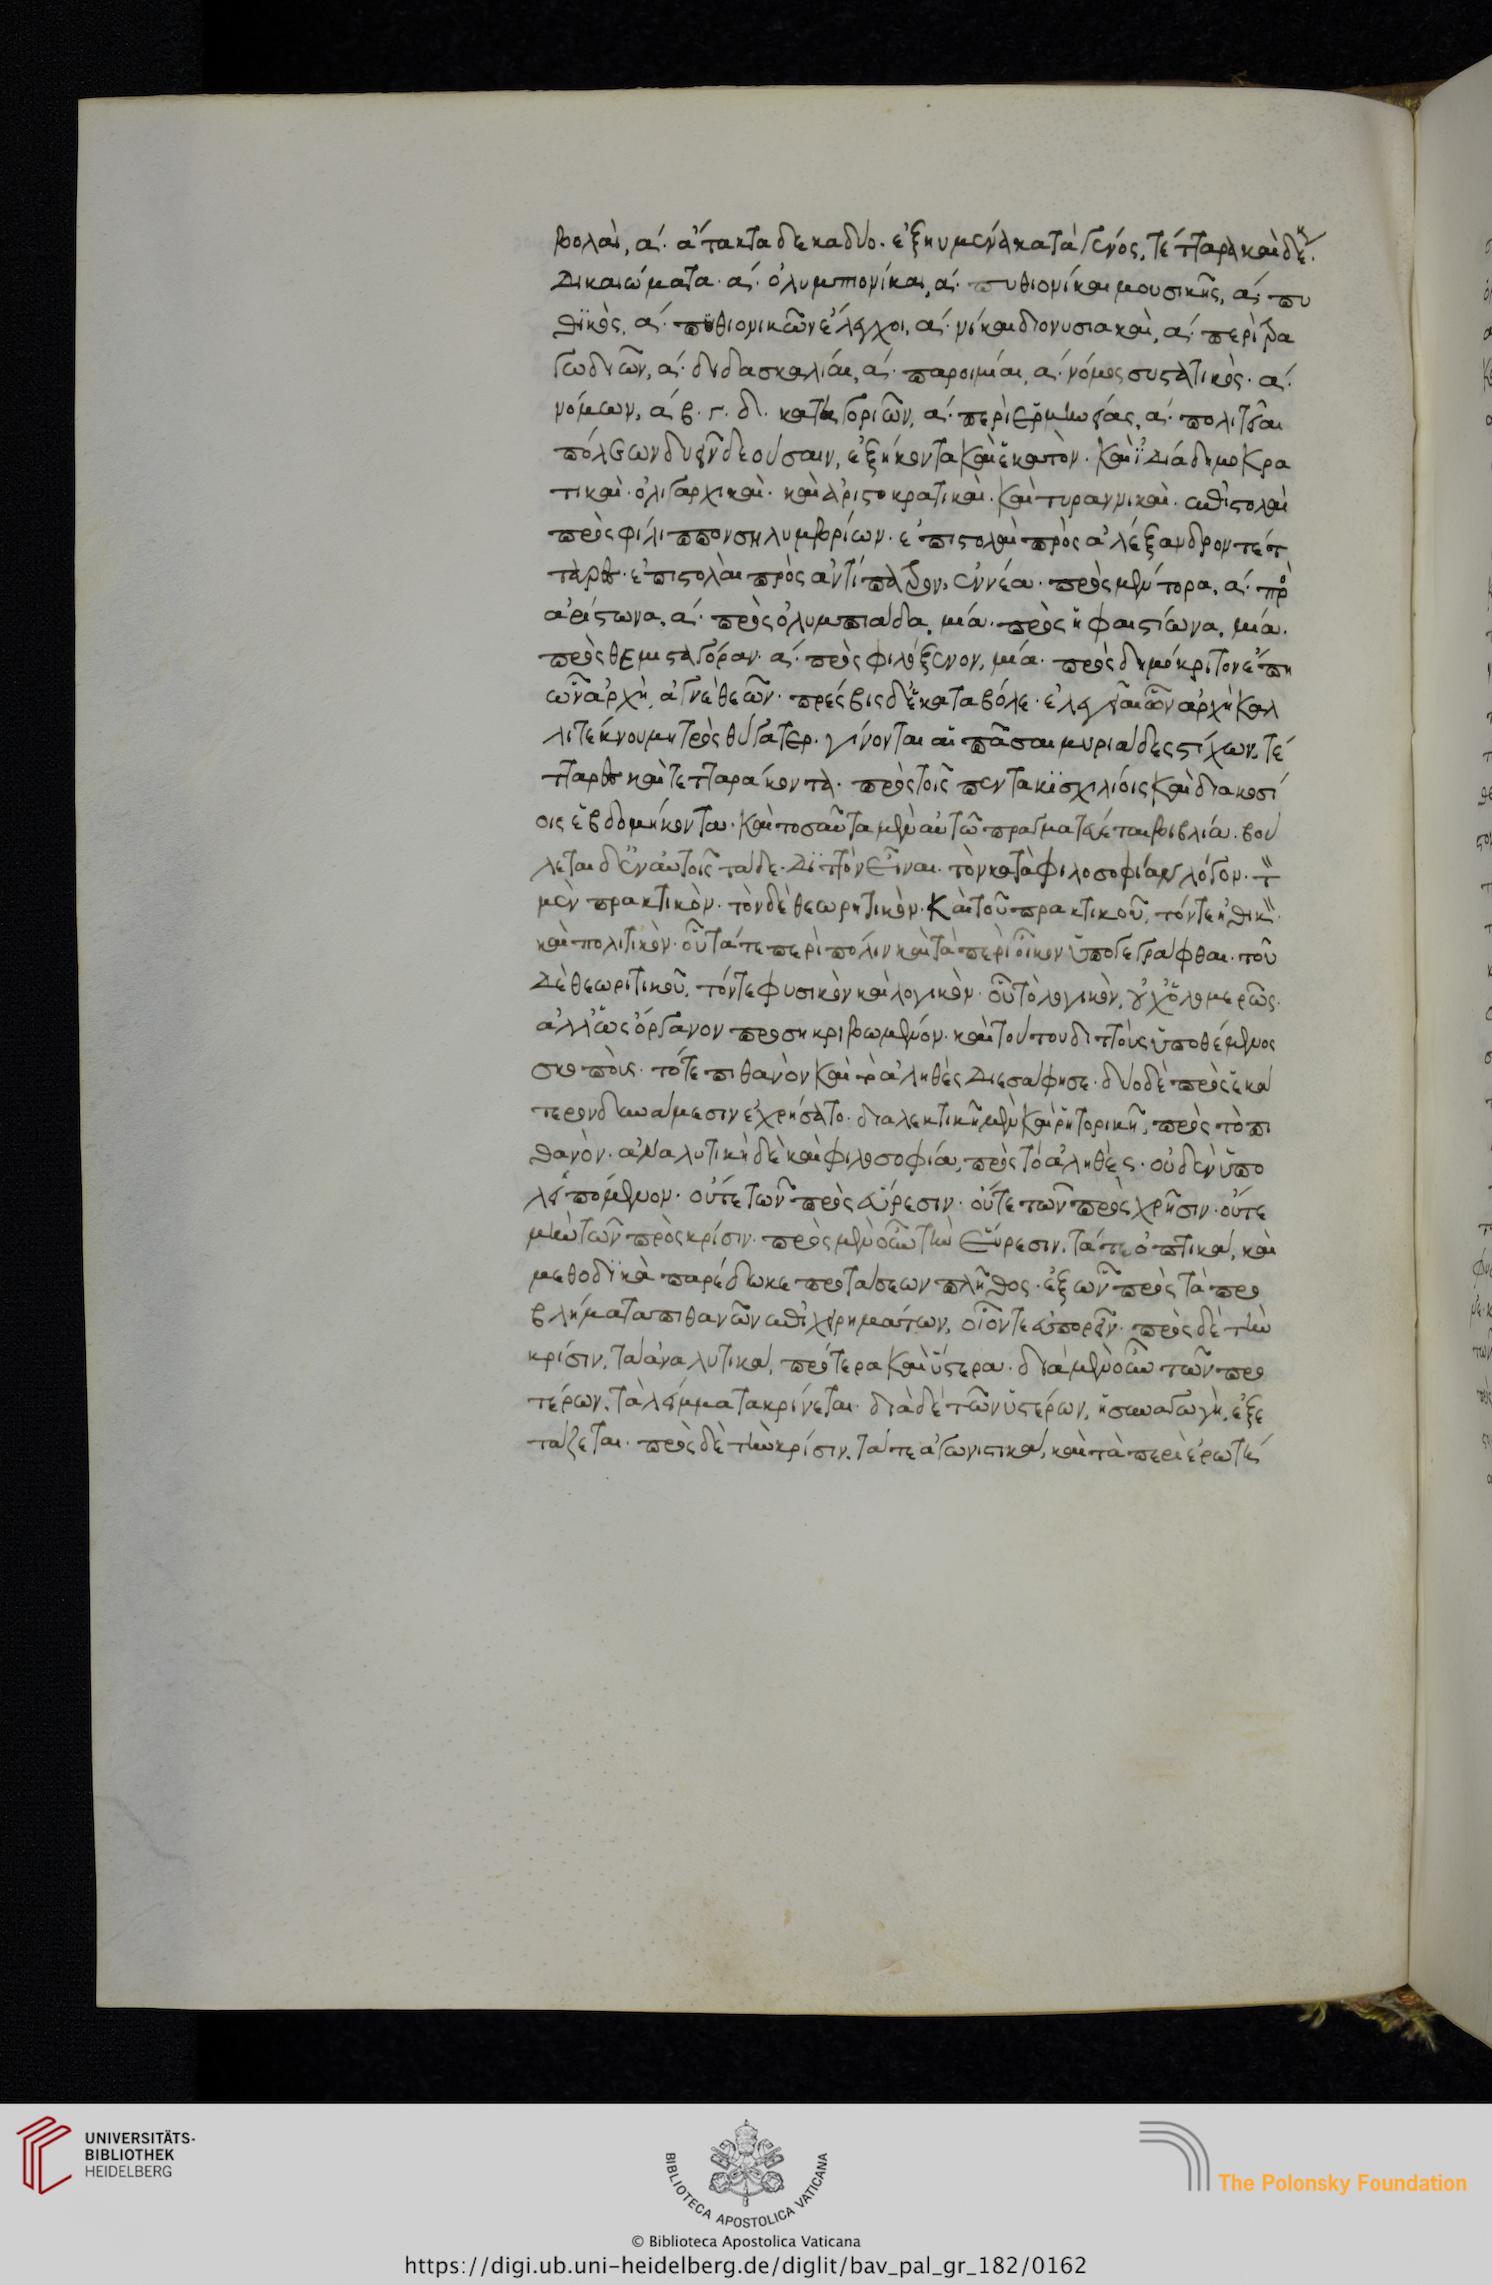 βολαὶ, α΄. ἄτακτα δεκαδύο. ἐξηυμένα κατὰ γένος, τέτταρα καὶ δέκ
δικαιώματα. α΄. ὀλυμπιονίκαι, α΄. πυθιονίκαι μουσικῆς, α΄. πυ
θϊκὸς, α΄. πυθιονικῶν ἔλεγχοι, α΄. νίκαι διονυσιακαὶ, α΄. περὶ τρα
γωδιῶν, α΄. διδασκαλίαι, α΄. παροιμίαι, α΄. νόμος συστατικὸς. α΄.
νόμων, α΄ β. γ. δ. κατηγοριῶν, α΄. περὶ ἑρμηνείας, α΄. πολιτεῖαι
πόλεων δυεῖν δεούσαιν, ἑξήκοντα καὶ ἑκατὸν. καὶ ϊδία δημοκρα
τικαὶ. ὀλιγαρχικαὶ. καὶ ἀριστοκρατικαὶ. καὶ τυραννικαὶ. ἐπιστολαὶ
πρὸς φίλιππον σηλυμβρίων. ἐπιστολαὶ πρὸς ἀλέξανδρον τέτ
ταρες. ἐπιστολαὶ πρὸς ἀντίπατρον, ἐννέα. πρὸς μέντορα, α΄. πρὸ
ἀρίστωνα, α΄. πρὸς ὀλυμπιάδα, μία. πρὸς ἡφαιστίωνα, μία.
πρὸς θεμισταγόραν. α΄. πρὸς φιλόξενον, μία. πρὸς δημόκριτον ἔπη
ὧν ἀρχὴ, ἁγνὲ θεῶν. πρέσβις δἑκαταβόλε. ἐλεγεῖαι ὧν ἀρχὴ καλ
λιτέκνου μητρὸς θύγατερ. γίνονται αἱ πᾶσαι μυριάδες στίχων, τέ
τταρες καὶ τετταράκοντα. πρὸς τοῖς πεντακϊσχιλίοις καὶ διακοσί
οις ἑβδομήκοντα. καὶ τοσαῦτα μὲν αὐτῶ πραγματεύεται βιβλία. βού
λεται δἐν αὐτοῖς τάδε. διττὸν εἶναι. τὸν κατὰ φιλοσοφίαν λόγον. τ
μὲν πρακτικὸν. τὸν δὲ θεωρητικὸν. καὶ τοῦ πρακτικοῦ, τόν τε ἠθικ
καὶ πολιτικὸν. οὗ τά τε περὶ πόλιν καὶ τὰ περὶ οἶκον ὑπογεγράφθαι. τοῦ
δὲ θεωριτικοῦ, τόν τε φυσικὸν καὶ λογικὸν. οὗ τὸ λογικὸν, οὐχ ὁλομερῶς.
ἀλλὡς ὄργανον προσηκριβωμένον. καὶ τούτου διττοὺς ὑποθέμενος
σκοποὺς. τό τε πιθανὸν καὶ τὸ ἀληθὲς διεσάφησε. δύο δὲ πρὸς ἑκά
τερον δυνάμεσιν ἐχρήσατο. διαλεκτικῆ μὲν καὶ ῥητορικῆ, πρὸς τὸ πι
θανὸν. ἀναλυτικὴ δὲ καὶ φιλοσοφία, πρὸς τὸ ἀληθὲς. οὐδὲν ὑπο
λειπόμενον. οὔτε τῶν πρὸς εὕρεσιν. οὔτε τῶν πρὸς χρῆσιν. οὔτε
μὴν τῶν πρὸς κρίσιν. πρὸς μὲν οὖν τὴν εὕρεσιν, τά τε ὀπτικὰ, καὶ
μεθοδϊκὰ παρέδωκε προτάσεων πλῆθος. ἐξ ὧν πρὸς τὰ προ
βλήματα πιθανῶν ἐπιχειρημάτων, οἷόν τε εὐπορεῖν. πρὸς δὲ τὴν
κρίσιν, τὰ ἀναλυτικὰ, πρότερα καὶ ὕστερα. διὰ μὲν οὖν τῶν προ
τέρων, τὰ λείμματα κρίνεται. διὰ δὲ τῶν ὑστέρων, ἡ συναγωγὴ, ἐξε
τάζεται. πρὸς δὲ τὴν κρίσιν, τά τε ἀγωνιστικὰ, καὶ τὰ περὶ ἐρωτή
UNIVERSITÄTS-
BIBLIOTHEK
HEIDELBERG
BIBLIOTECA APOSTOLICA VATICANA
The Polonsky Foundation
© Biblioteca Apostolica Vaticana
https://digi.ub.uni-heidelberg.de/diglit/bav_pal_gr_182/0162